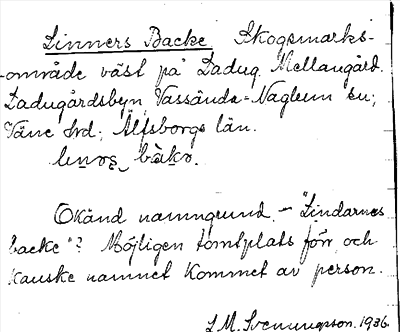 Linners Backe Skogsmarks-
område väst på Dadug. Mellangård.
Dadugårdsbyn, Vassända-Naglum sn;
Väne hrd; Älfsborgs län.
bàko.
Okänd namngrund. - "Lindarnes
backe"? Möjligen tomtplats förr, och
kanske namnet kommet av person.
L.M. Svenungsson. 1936.